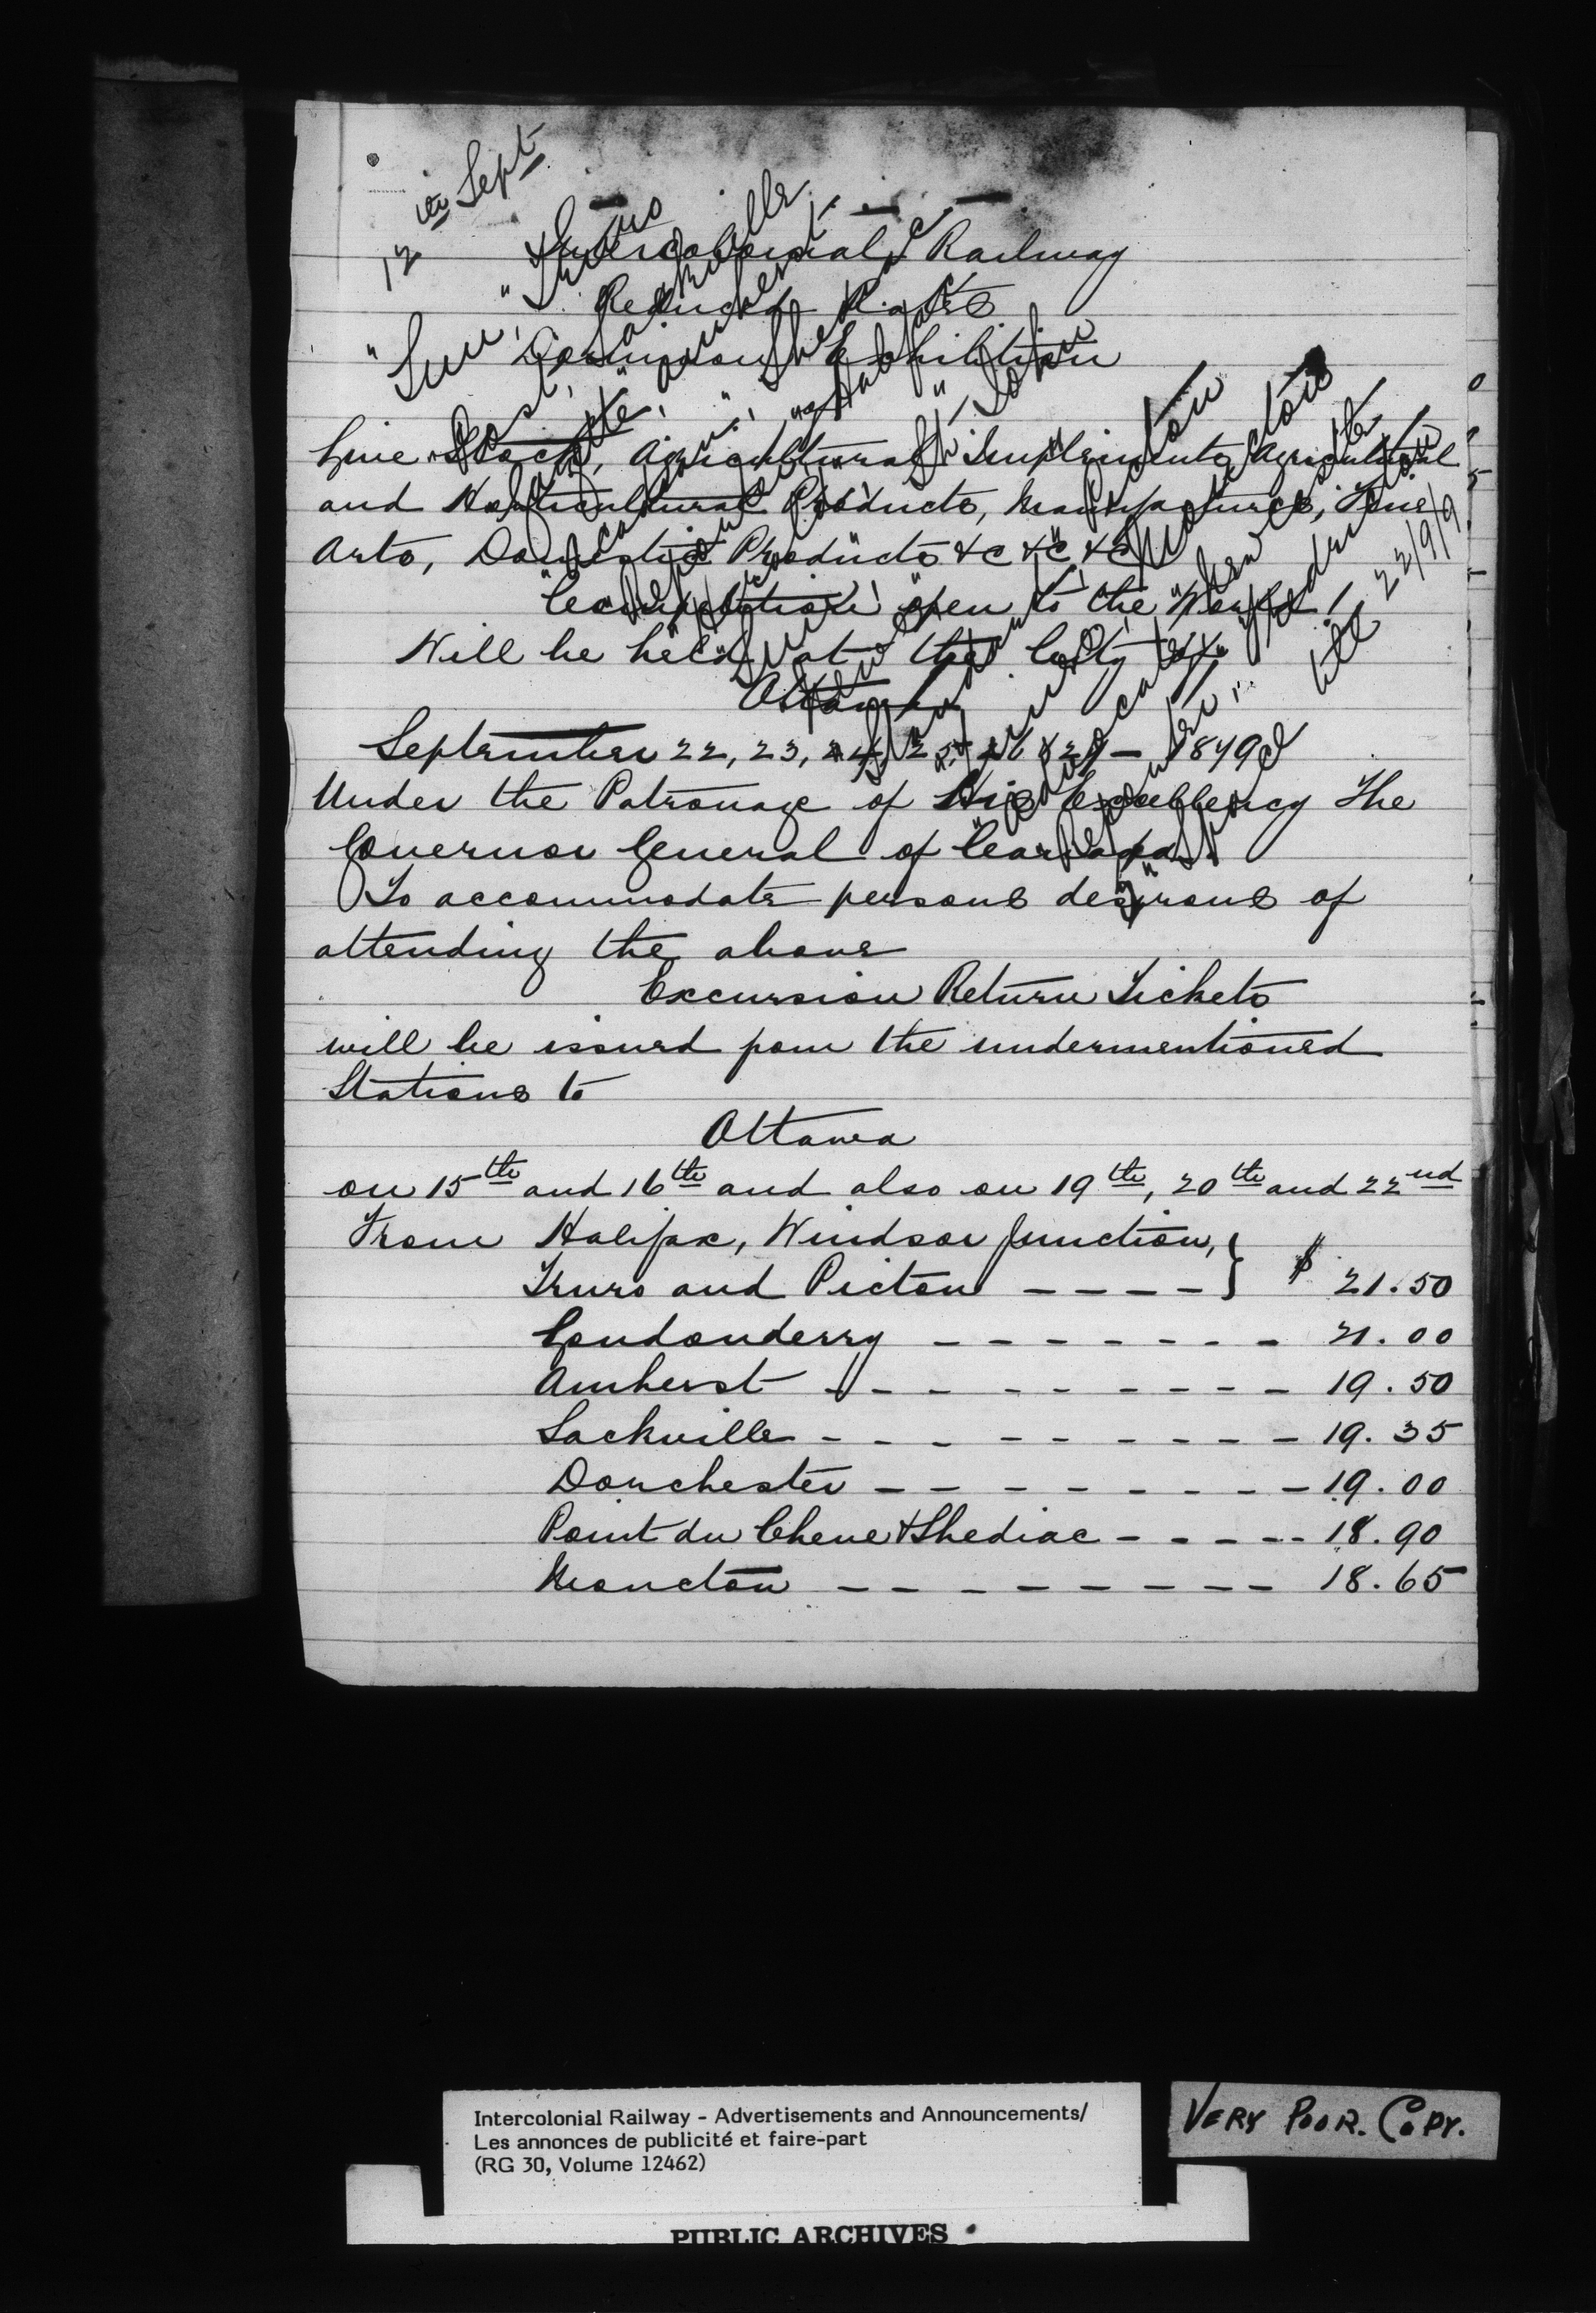 12th Sept
Intercolonial Railway
Reduced Rates
Dominion Exhibition
Live Stock, Agricultural Implements, Agricultural
and Horticultural Products, Manufactures, Fine
Arts, Domestic Products &c &c &c
Competition open to the World!
Will be held at the City of
Ottawa
September 22, 23, 24, 25, 26 & 27 — 1879
Under the Patronage of His Excellency The
Governor General of Canada.
To accommodate persons desirous of
attending the above
Excursion Return Tickets
will be issued from the undermentioned
Stations to
Ottawa
on 15th and 16th and also on 19th, 20th and 22nd
From Halifax, Windsor Junction, }
Truro and Pictou - - - - } $ 21.50
Londonderry - - - - - - - 21.00
Amherst - - - - - - - - - 19.50
Sackville - - - - - - - - - 19.35
Dorchester - - - - - - - - 19.00
Point du Chene & Shediac - - - - - 18.90
Moncton - - - - - - - - 18.65
"Sun", Truro
Post, Sackville
Gazette, Amherst
till 22/9/9
Intercolonial Railway - Advertisements and Announcements/
Les annonces de publicité et faire-part
(RG 30, Volume 12462)
VERY POOR. COPY.
PUBLIC ARCHIVES